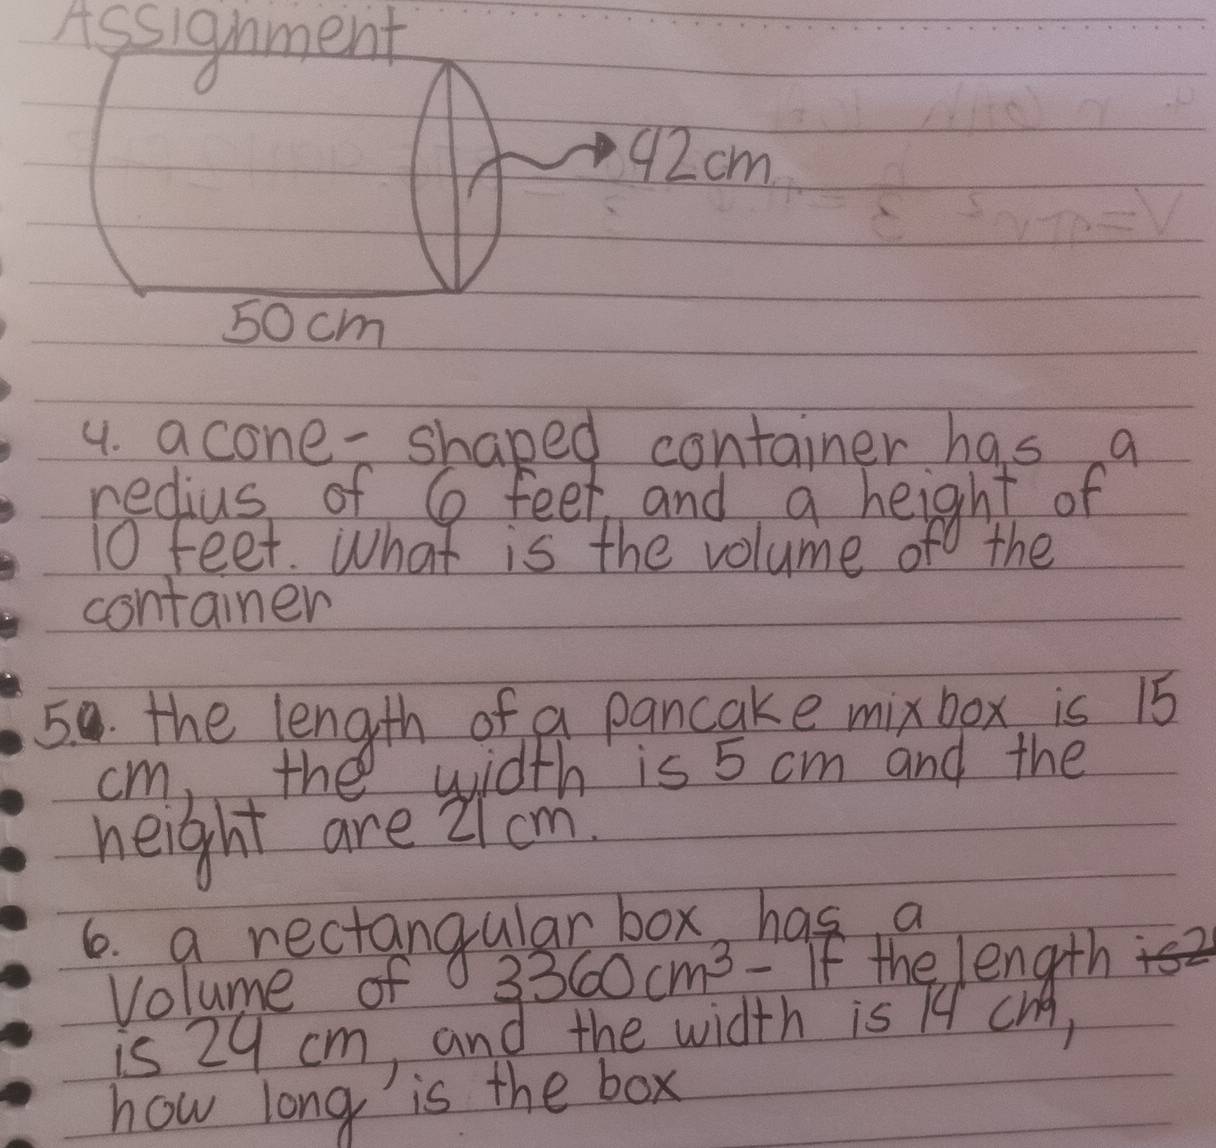 Assignment
42cm
50cm
4. a cone- shaped container has a
redius of 6 feet and a height of
10 feet. What is the volume of the
container
5.a. the length of a pancake mix box is 15
cm, the width is 5 cm and the
height are 21 cm.
6. a rectangular box has a
Volume of 3360cm³- If the length is 2
is 24 cm, and the width is 14 cm,
how long is the box